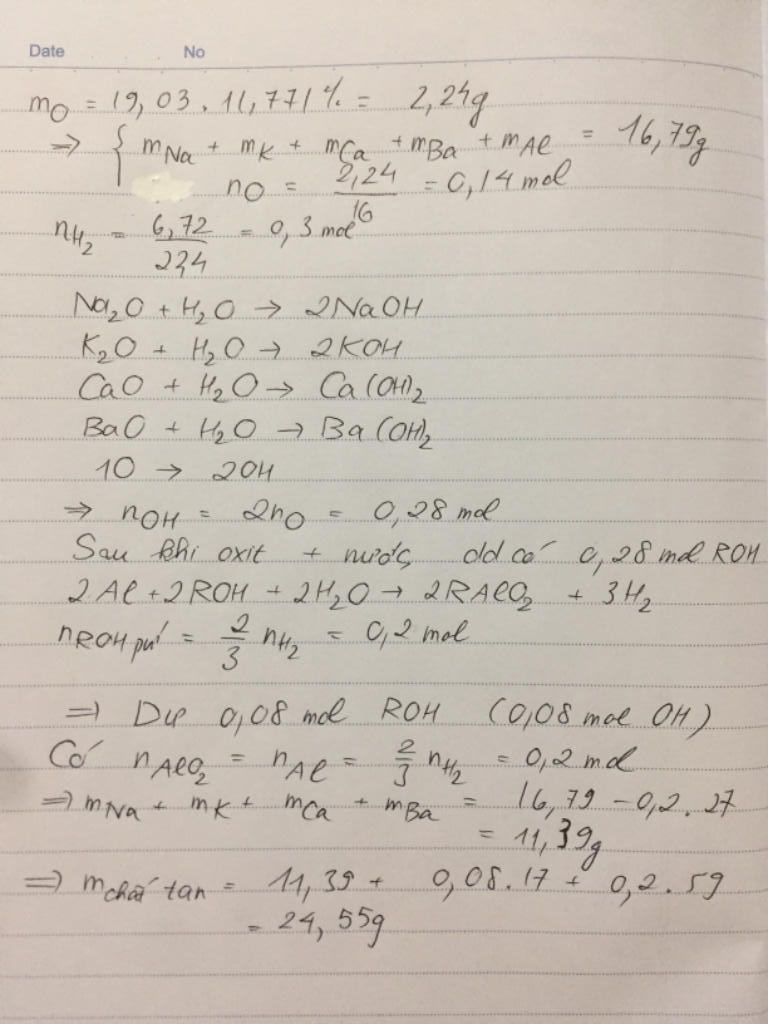 Date No
m_O = 19,03 . 11,771% = 2,24g
=> { m_Na + m_K + m_Ca + m_Ba + m_Al = 16,79g
n_O = 2,24/16 = 0,14 mol
n_H₂ = 6,72/22,4 = 0,3 mol
Na₂O + H₂O → 2NaOH
K₂O + H₂O → 2KOH
CaO + H₂O → Ca(OH)₂
BaO + H₂O → Ba(OH)₂
1O → 2OH
=> n_OH = 2n_O = 0,28 mol
Sau khi oxit + nước, dd có 0,28 mol ROH
2Al + 2ROH + 2H₂O → 2RAlO₂ + 3H₂
n_ROH pứ = 2/3 n_H₂ = 0,2 mol
=> Dư 0,08 mol ROH (0,08 mol OH)
Có n_AlO₂ = n_Al = 2/3 n_H₂ = 0,2 mol
=> m_Na + m_K + m_Ca + m_Ba = 16,79 - 0,2 . 27
= 11,39g
=> m_chất tan = 11,39 + 0,08 . 17 + 0,2 . 59
= 24,55g